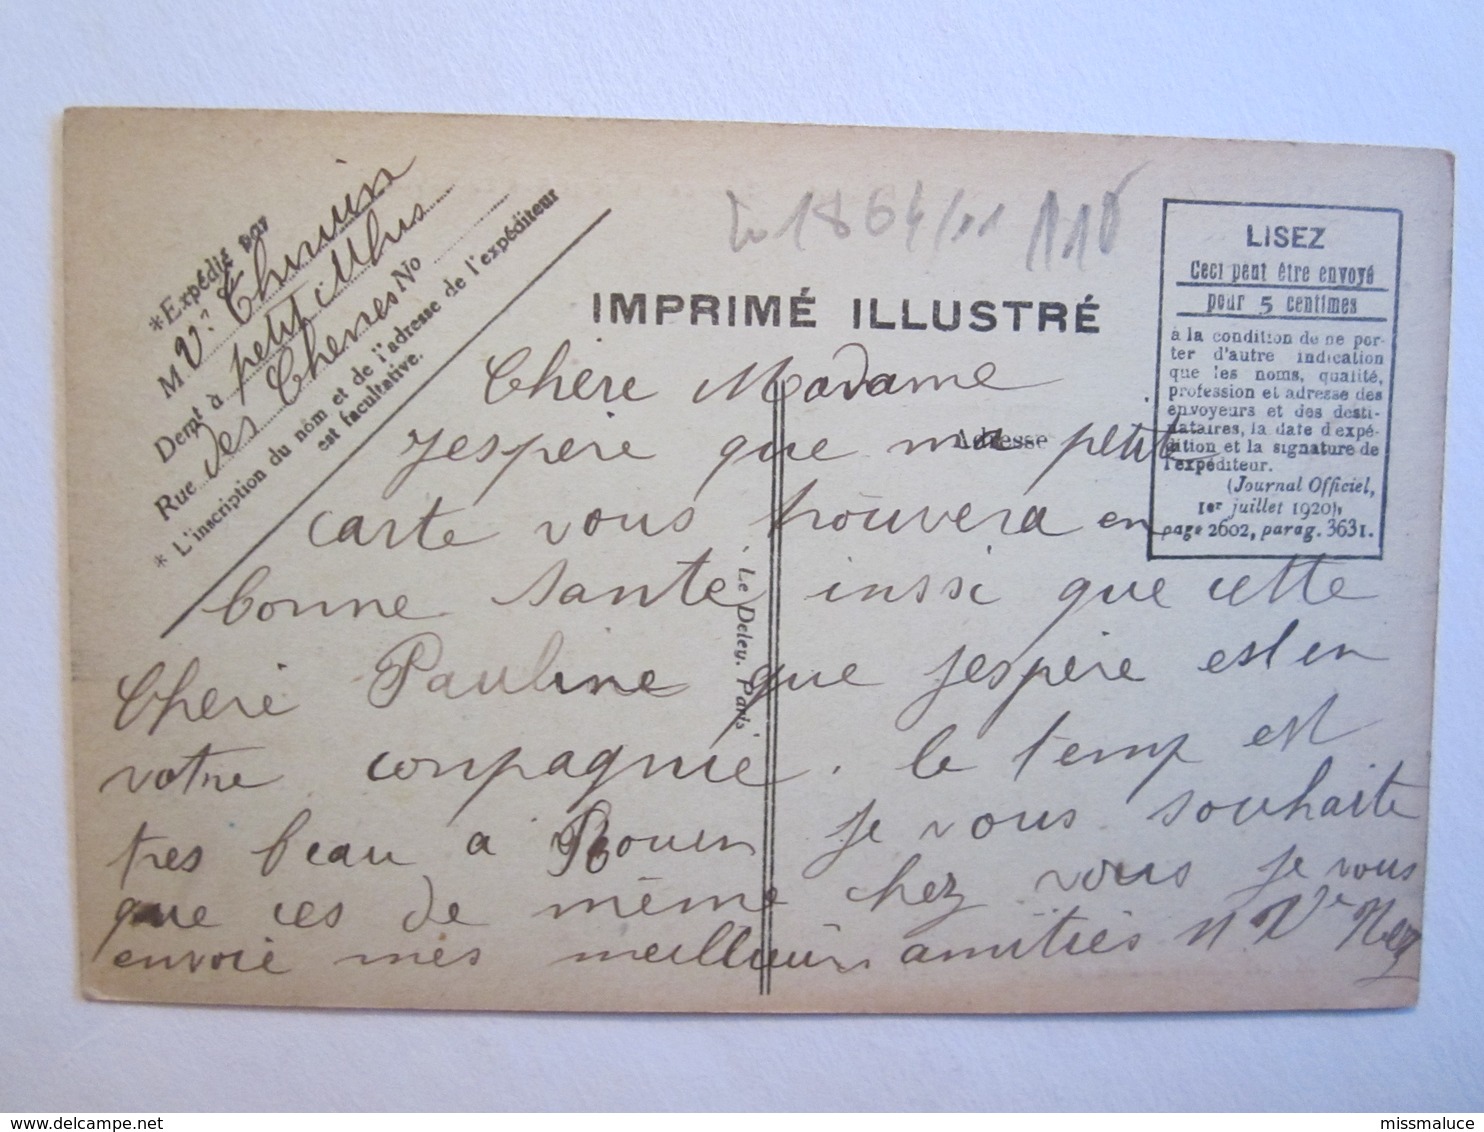 *Expédié par
M Ve Thuiss
Demt à petit
Rue des Chenes No
* L'inscription du nôm et de l'adresse de l'expéditeur
est facultative.
1864/11 110
IMPRIMÉ ILLUSTRÉ
LISEZ
Ceci peut être envoyé
pour 5 centimes
à la condition de ne por-
ter d'autre indication
que les noms, qualité,
profession et adresse des
envoyeurs et des desti-
nataires, la date d'expé-
dition et la signature de
l'expéditeur.
(Journal Officiel,
1er juillet 1920),
page 2602, parag. 3631.
Adresse
Le Deley. Paris
Chère Madame
jespère que ma petite
carte vous trouvera en
bonne sante inssi que cette
Cheré Pauline que jespère est en
votre compagnie. le temp est
tres beau a Rouen je vous souhaite
que ces de même chez vous je vous
envoie mes meilleurs amitiés Ve
missmaluce